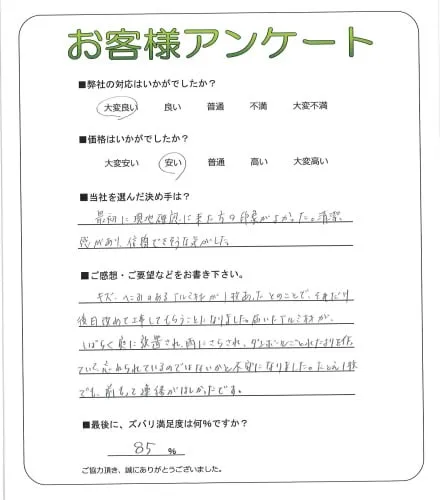 お客様アンケート
■弊社の対応はいかがでしたか?
大変良い 良い 普通 不満 大変不満
■価格はいかがでしたか?
大変安い 安い 普通 高い 大変高い
■当社を選んだ決め手は?
最初に現地確認に来た方の印象がよかった。清潔
感があり、信頼できそうな気がした。
■ご感想・ご要望などをお書き下さい。
キズ、へこみのあるアルミ材が1枚あったとのことで、それだけ
後日改めて工事してもらうことになりました。届いたアルミ材が、
しばらく庭に放置され、雨にさらされ、ダンボールごとぬれたまま
ていて、忘れられているのではないかと不安になりました。たとえ1枚
でも、前もって連絡がほしかったです。
■最後に、ズバリ満足度は何%ですか?
85 %
ご協力頂き、誠にありがとうございました。